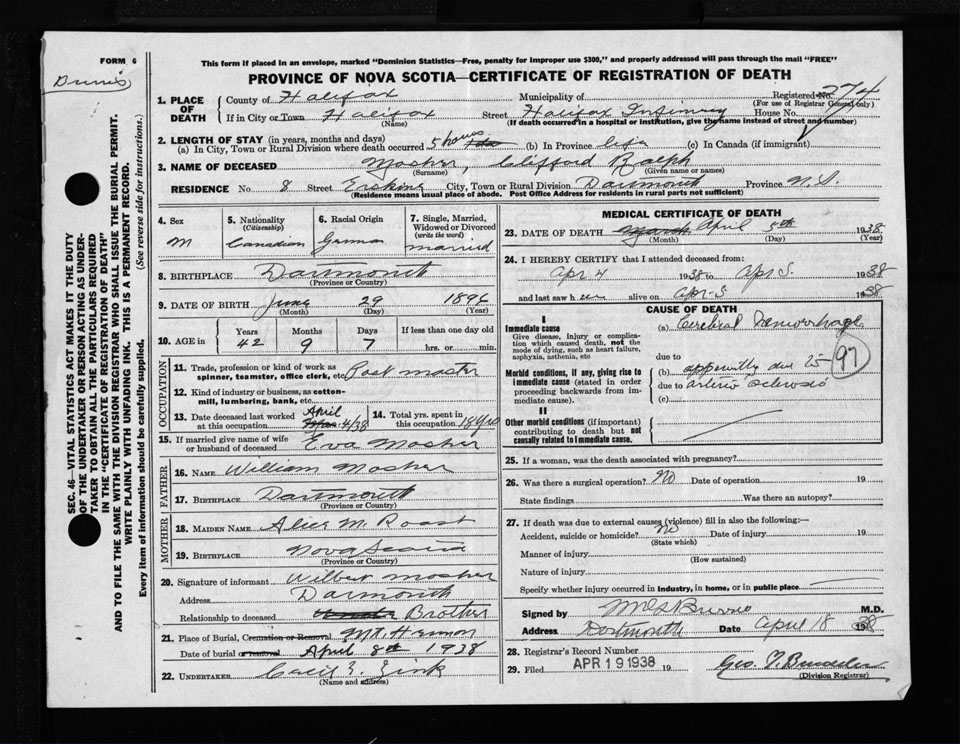 FORM 6
This form if placed in an envelope, marked "Dominion Statistics—Free, penalty for improper use $300," and properly addressed will pass through the mail "FREE"
PROVINCE OF NOVA SCOTIA—CERTIFICATE OF REGISTRATION OF DEATH
SEC. 46—VITAL STATISTICS ACT MAKES IT THE DUTY
OF THE UNDERTAKER OR PERSON ACTING AS UNDER-
TAKER TO OBTAIN ALL THE PARTICULARS REQUIRED
IN THE "CERTIFICATE OF REGISTRATION OF DEATH"
AND TO FILE THE SAME WITH THE DIVISION REGISTRAR WHO SHALL ISSUE THE BURIAL PERMIT.
WRITE PLAINLY WITH UNFADING INK. THIS IS A PERMANENT RECORD.
Every item of information should be carefully supplied. (See reverse side for instructions.)
1. PLACE OF DEATH
County of Halifax Municipality of Registered No. 274
(For use of Registrar General only)
If in City or Town Halifax Street Halifax Infirmary House No.
(Name) (If death occurred in a hospital or institution, give the name instead of street and number)
2. LENGTH OF STAY (in years, months and days)
(a) In City, Town or Rural Division where death occurred 5 hours (b) In Province life (c) In Canada (if immigrant)
3. NAME OF DECEASED Mosher, Clifford Ralph
(Surname) (Given name or names)
RESIDENCE No. 8 Street Erskine City, Town or Rural Division Dartmouth Province N.S.
(Residence means usual place of abode. Post Office Address for residents in rural parts not sufficient)
4. Sex
M
5. Nationality
(Citizenship)
Canadian
6. Racial Origin
German
7. Single, Married, Widowed or Divorced
(write the word)
married
8. BIRTHPLACE Dartmouth
(Province or Country)
9. DATE OF BIRTH June 29 1896
(Month) (Day) (Year)
10. AGE in Years Months Days If less than one day old
42 9 7 hrs. or min.
OCCUPATION
11. Trade, profession or kind of work as
spinner, teamster, office clerk, etc. Post master
12. Kind of industry or business, as cotton-
mill, lumbering, bank, etc.
13. Date deceased last worked
at this occupation April 4/38
14. Total yrs. spent in
this occupation 18 yrs
15. If married give name of wife
or husband of deceased Eva Mosher
FATHER
16. NAME William Mosher
17. BIRTHPLACE Dartmouth
(Province or Country)
MOTHER
18. MAIDEN NAME Alice M. Roast
19. BIRTHPLACE Nova Scotia
(Province or Country)
20. Signature of informant Wilbert Mosher
Address Darmouth
Relationship to deceased Brother
21. Place of Burial, Cremation or Removal Mt. Hermon
Date of burial or removal April 8th 1938
22. UNDERTAKER Cecil Zink
(Name and address)
MEDICAL CERTIFICATE OF DEATH
23. DATE OF DEATH March April 5th 1938
(Month) (Day) (Year)
24. I HEREBY CERTIFY that I attended deceased from:
Apr 4 1938 to Apr 5. 1938
and last saw h im alive on Apr-5 1938
CAUSE OF DEATH
I
Immediate cause
Give disease, injury or complica-
tion which caused death, not the
mode of dying, such as heart failure,
asphyxia, asthenia, etc
(a) Cerebral Hemorrhage
due to
97
Morbid conditions, if any, giving rise to
immediate cause (stated in order
proceeding backwards from im-
mediate cause).
(b) apparently due to
due to arterio sclerosis
(c)
II
Other morbid conditions (if important)
contributing to death but not
causally related to immediate cause.
25. If a woman, was the death associated with pregnancy?
26. Was there a surgical operation? No Date of operation 19
State findings Was there an autopsy?
27. If death was due to external causes (violence) fill in also the following:—
Accident, suicide or homicide? No Date of injury 19
(State which)
Manner of injury
(How sustained)
Nature of injury
Specify whether injury occurred in industry, in home, or in public place
Signed by M.D.
Address Dartmouth Date April 18 1938
28. Registrar's Record Number
29. Filed APR 19 1938 19
(Division Registrar)